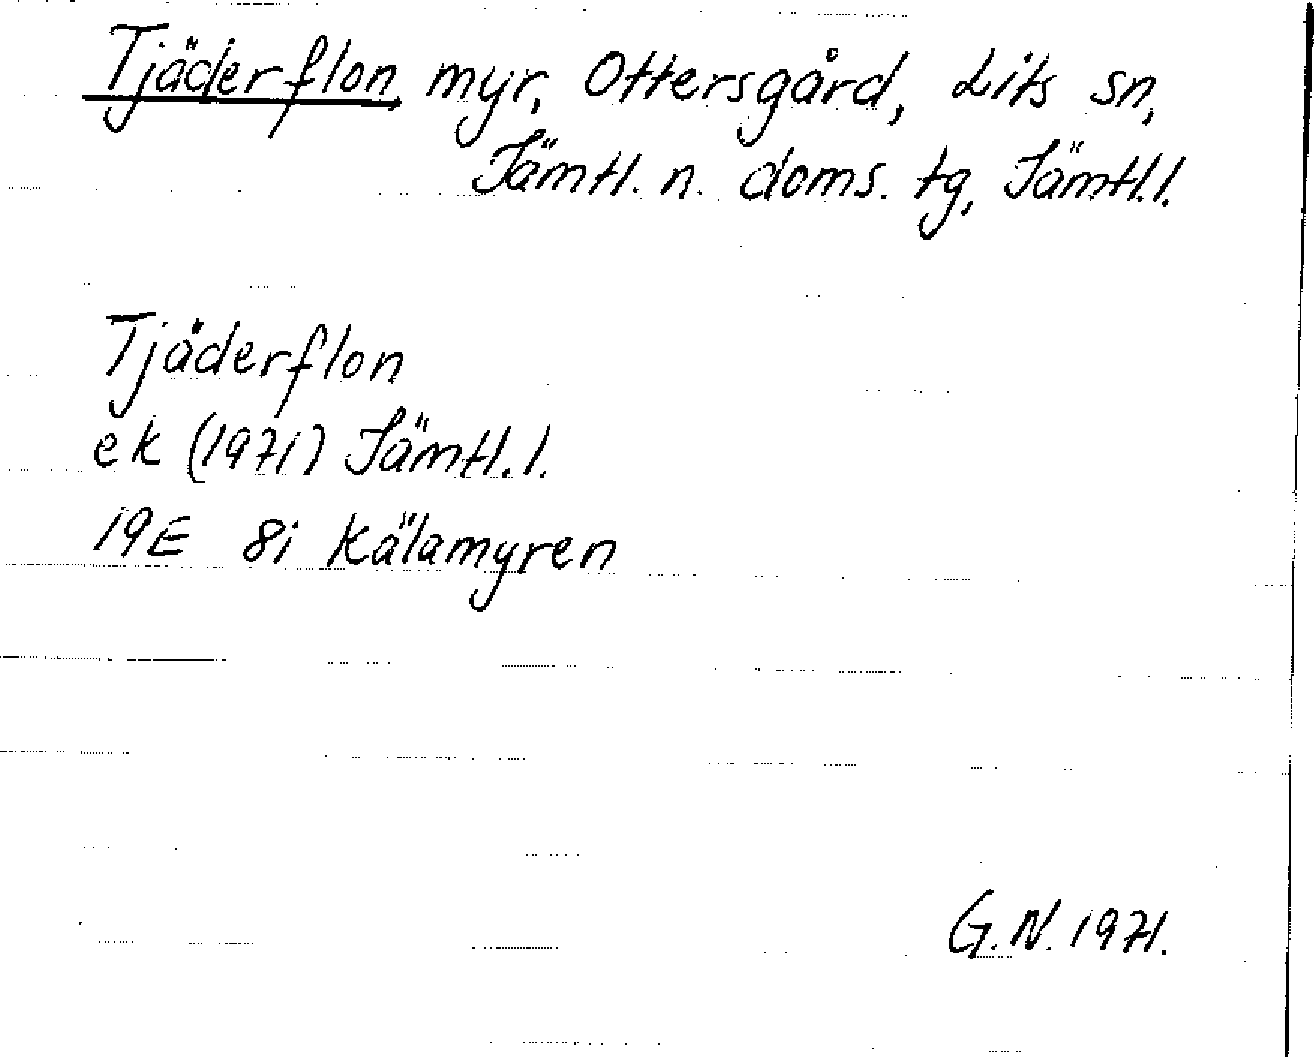 Tjäderflon myr, Ottersgård, Lits sn,
Jämtl. n. doms. tg, Jämtl.l.
Tjäderflon
ek (1971) Jämtl.l.
19E 8i Kälamyren
G.N. 1971.